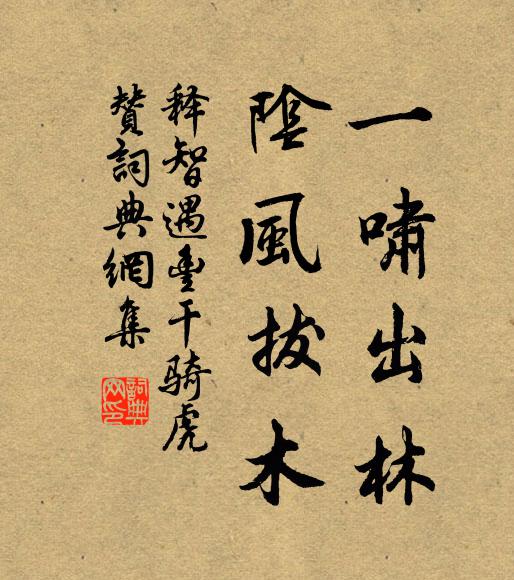 一嘯出林
陰風拔木
释智遇豐干骑虎
贊詞典網集
詞典網印